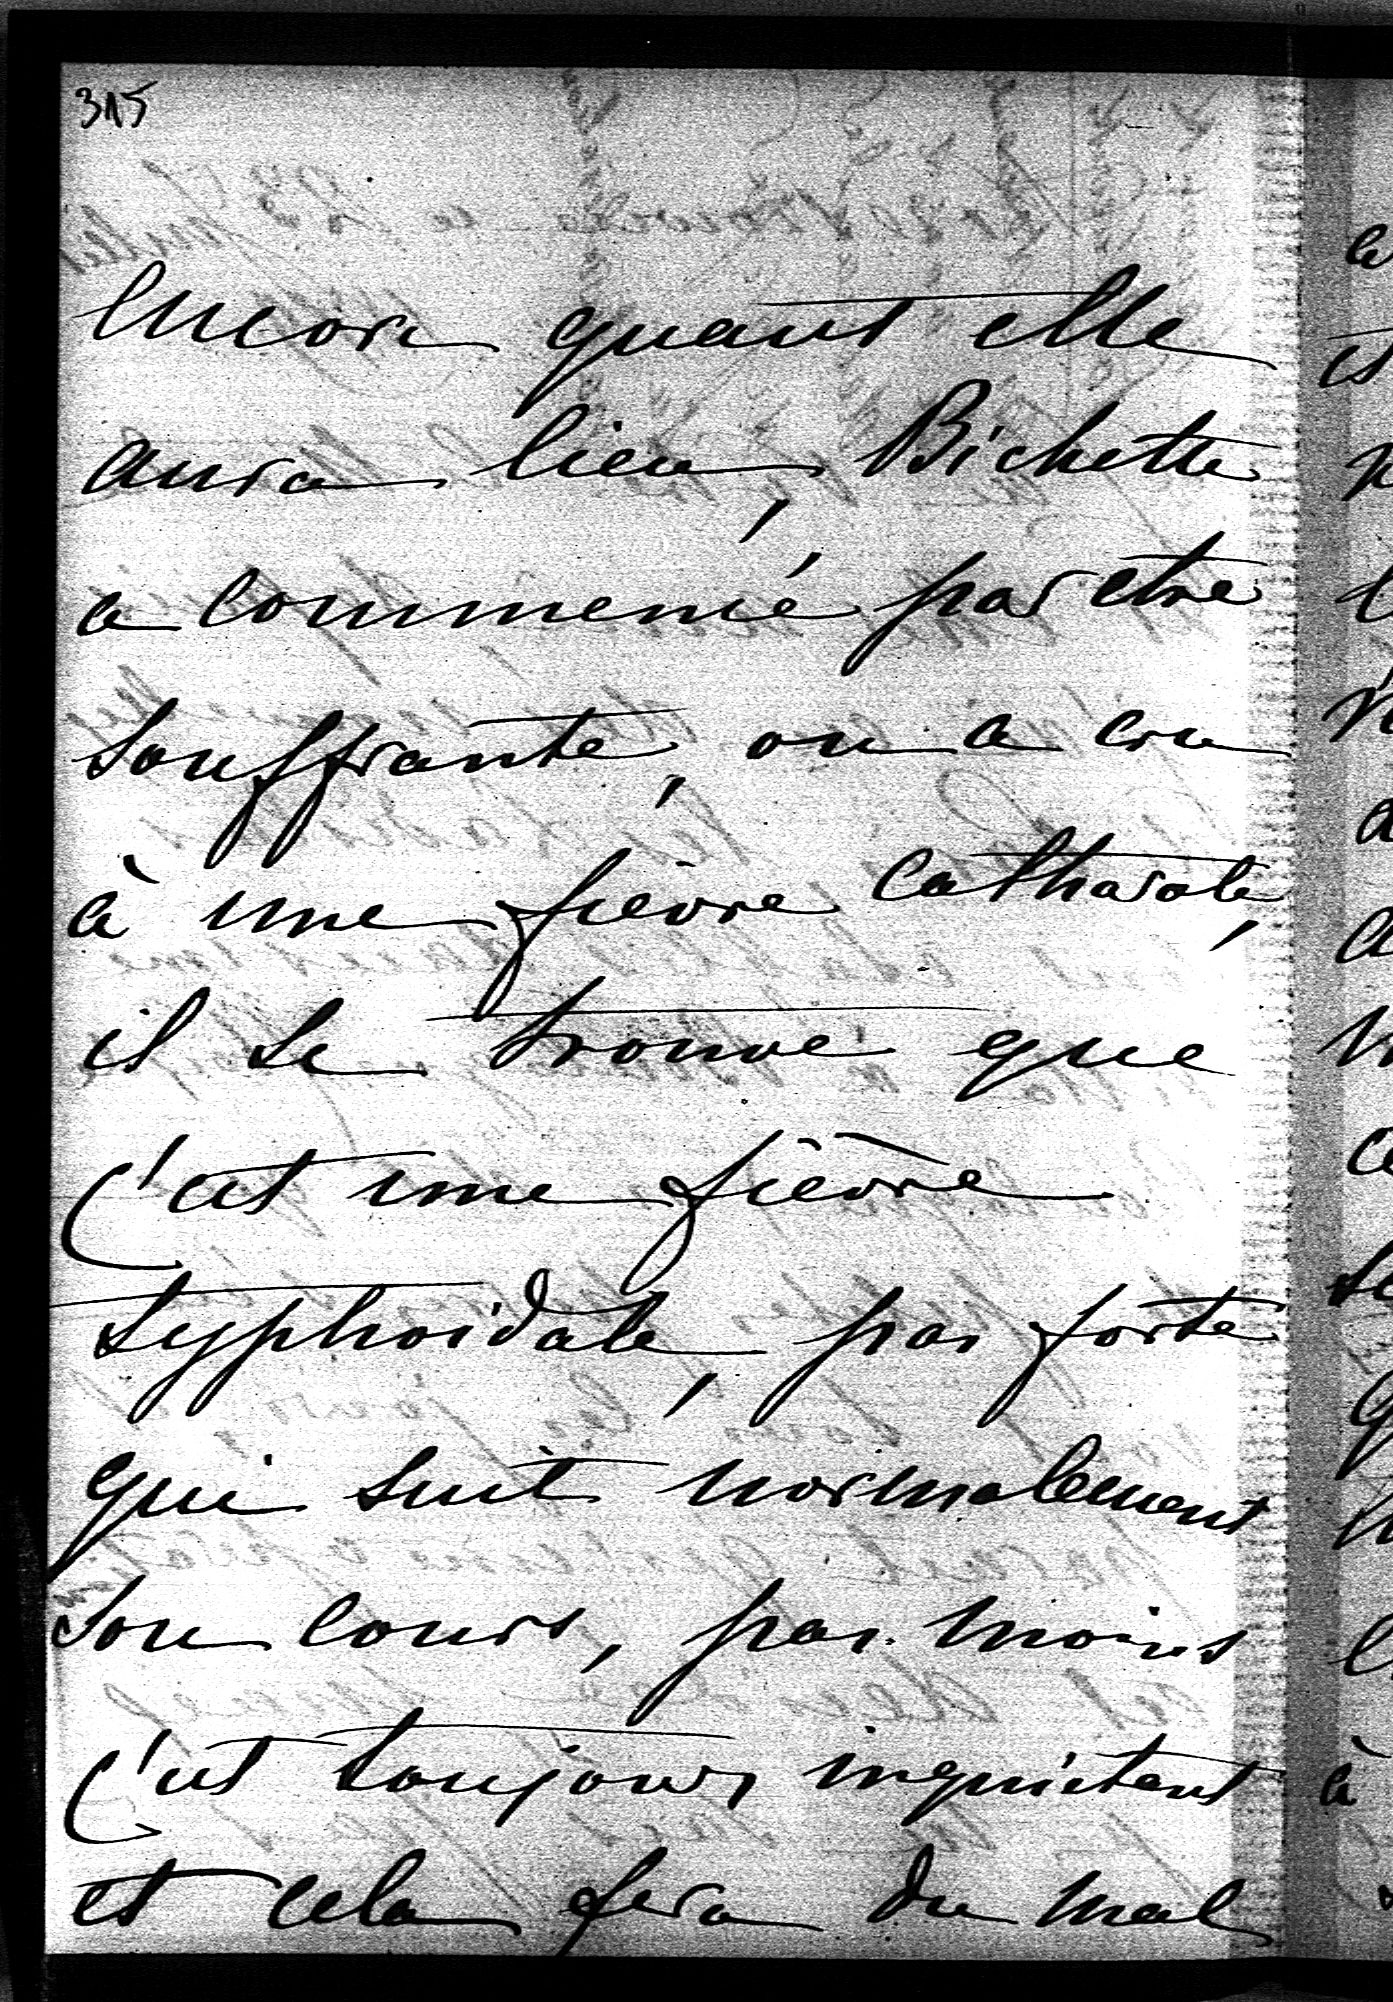 315
encore quant elle
aura lieu, Bichette
a commencé par être
souffrante, on a cru
à une fièvre catharale,
il se trouve que
c'est une fièvre
typhoïdale, pas forte
qui suit normalement
son cours, pas moins
c'est toujours inquiétant
et cela fera du mal